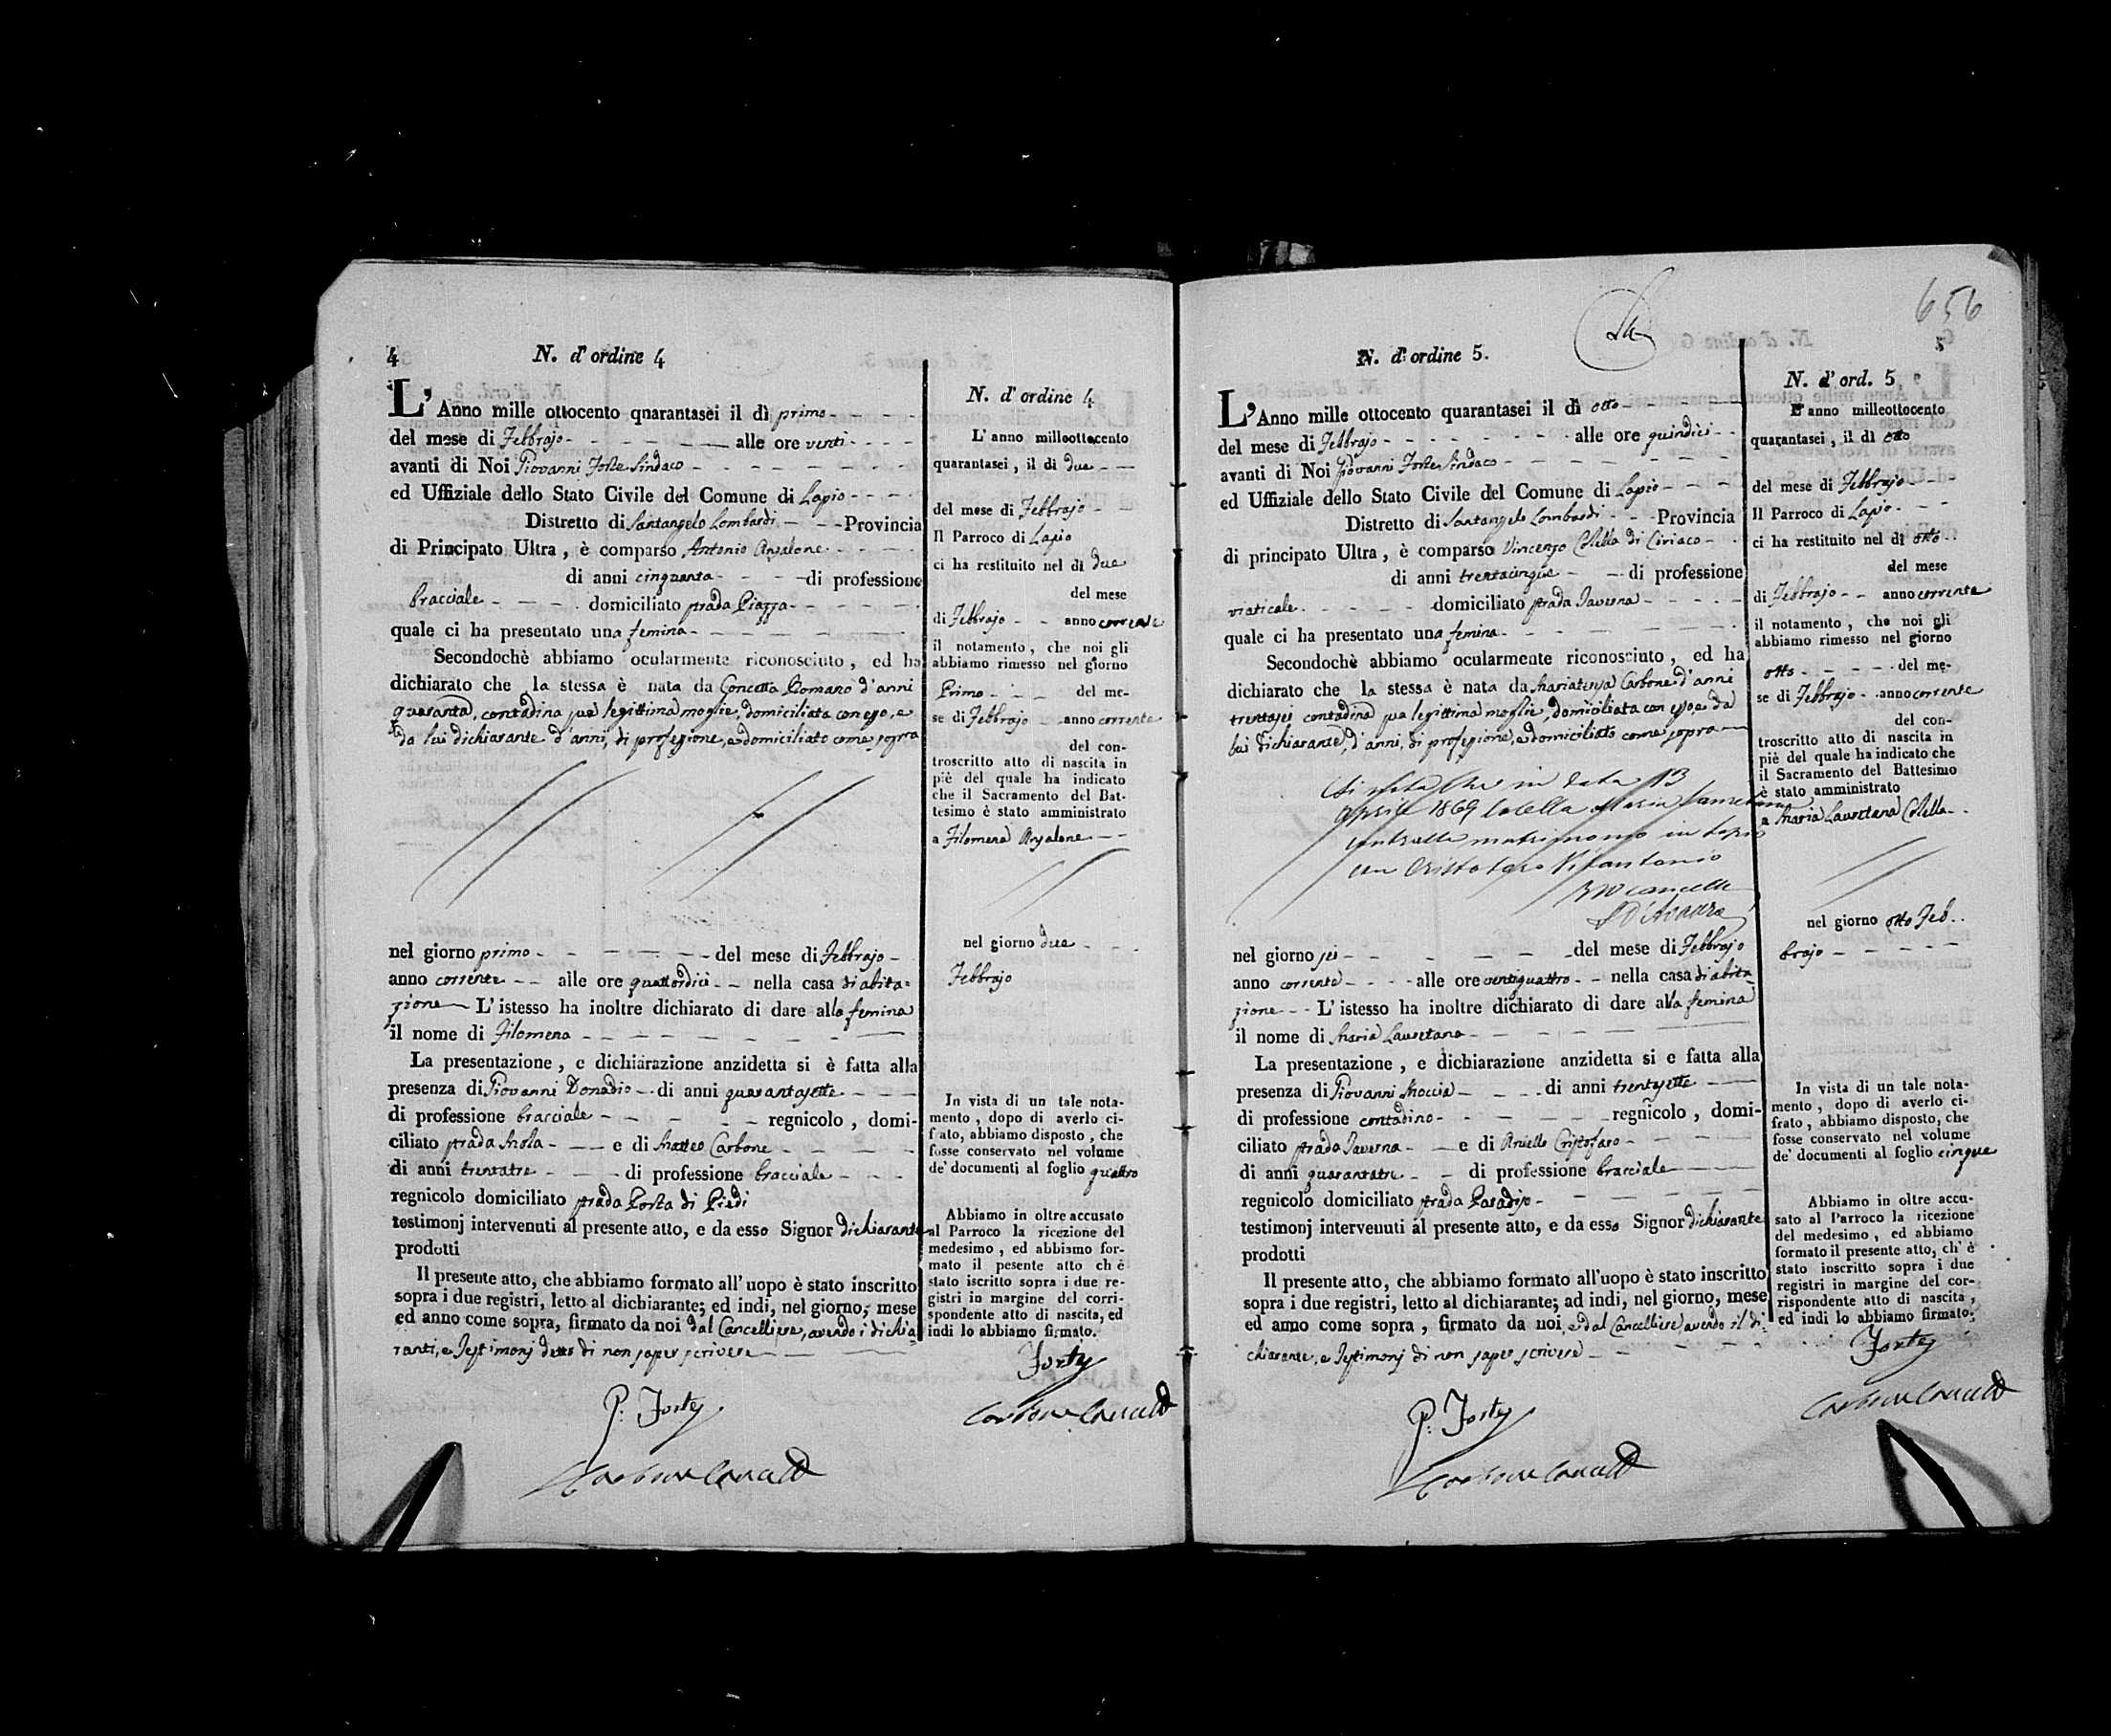 4
N. d'ordine 4
L'Anno mille ottocento quarantasei il dì primo
del mese di Febbrajo alle ore venti
avanti di Noi Giovanni Forte Sindaco
ed Uffiziale dello Stato Civile del Comune di Lapio
Distretto di Santangelo Lombardi Provincia
di Principato Ultra, è comparso Antonio Anzalone
di anni cinquanta di professione
bracciale domiciliato strada Piazza
quale ci ha presentato una femina
Secondochè abbiamo ocularmente riconosciuto, ed ha
dichiarato che la stessa è nata da Concetta Romano d'anni
quaranta, contadina sua legittima moglie, domiciliata con esso, e
da lui dichiarante d'anni, di professione, e domiciliato come sopra
nel giorno primo del mese di Febbrajo
anno corrente alle ore quattordici nella casa di abita=
zione L'istesso ha inoltre dichiarato di dare alla femina
il nome di Filomena
La presentazione, e dichiarazione anzidetta si è fatta alla
presenza di Giovanni Donadio di anni quarantasette
di professione bracciale regnicolo, domi-
ciliato strada Mola e di Matteo Carbone
di anni trentatre di professione bracciale
regnicolo domiciliato strada Porta di Piedi
testimonj intervenuti al presente atto, e da esso Signor dichiarante
prodotti
Il presente atto, che abbiamo formato all'uopo è stato inscritto
sopra i due registri, letto al dichiarante; ed indi, nel giorno, mese
ed anno come sopra, firmato da noi dal Cancelliere, avendo i dichia=
ranti, e Testimonj detto di non saper scrivere
P: Forte
Carbone Cancell
N. d'ordine 4
L'anno milleottocento
quarantasei, il di due
del mese di Febbrajo
Il Parroco di Lapio
ci ha restituito nel di due
del mese
di Febbrajo anno corrente
il notamento, che noi gli
abbiamo rimesso nel giorno
Primo del me-
se di Febbrajo anno corrente
del con-
troscritto atto di nascita in
piè del quale ha indicato
che il Sacramento del Bat-
tesimo è stato amministrato
a Filomena Anzalone
nel giorno due
Febbrajo
In vista di un tale nota-
mento, dopo di averlo ci-
frato, abbiamo disposto, che
fosse conservato nel volume
de' documenti al foglio quattro
Abbiamo in oltre accusato
al Parroco la ricezione del
medesimo, ed abbiamo for-
mato il pesente atto ch è
stato iscritto sopra i due re-
gistri in margine del corri-
spondente atto di nascita, ed
indi lo abbiamo firmato.
Forte
Carbone Cancell
656
N. d'ordine 5.
L'Anno mille ottocento quarantasei il dì otto
del mese di Febbrajo alle ore quindici
avanti di Noi Giovanni Forte Sindaco
ed Uffiziale dello Stato Civile del Comune di Lapio
Distretto di Santangelo Lombardi Provincia
di principato Ultra, è comparso Vincenzo Colella di Ciriaco
di anni trentacinque di professione
viaticale domiciliato strada Taverna
quale ci ha presentato una femina
Secondochè abbiamo ocularmente riconosciuto, ed ha
dichiarato che la stessa è nata da Mariateresa Carbone d'anni
trentasei contadina sua legittima moglie, domiciliata con esso, e da
lui dichiarante, d'anni, di professione, e domiciliato come sopra
Si nota che in data 13
Aprile 1869 Colella Maria Lauretana
contrasse matrimonio in Lapio
con Cristofaro Vitantonio
nel giorno sei del mese di Febbrajo
anno corrente alle ore ventiquattro nella casa di abita=
zione L'istesso ha inoltre dichiarato di dare alla femina
il nome di Maria Lauretana
La presentazione, e dichiarazione anzidetta si e fatta alla
presenza di Giovanni Moccia di anni trentasette
di professione contadino regnicolo, domi-
ciliato strada Taverna e di Aniello Cristofaro
di anni quarantatre di professione bracciale
regnicolo domiciliato strada Paradiso
testimonj intervenuti al presente atto, e da esso Signor dichiarante
prodotti
Il presente atto, che abbiamo formato all'uopo è stato inscritto
sopra i due registri, letto al dichiarante; ad indi, nel giorno, mese
ed anno come sopra, firmato da noi, e dal Cancelliere avendo il di=
chiarante, e Testimonj di non saper scrivere
P: Forte
Carbone Cancell
N. d'ord. 5
L'anno milleottocento
quarantasei, il dì otto
del mese di Febbrajo
Il Parroco di Lapio
ci ha restituito nel dì otto
del mese
di Febbrajo anno corrente
il notamento, che noi gli
abbiamo rimesso nel giorno
otto del me-
se di Febbrajo anno corrente
del con-
troscritto atto di nascita in
piè del quale ha indicato che
il Sacramento del Battesimo
è stato amministrato
a Maria Lauretana Colella
nel giorno otto Feb
brajo
In vista di un tale nota-
mento, dopo di averlo ci-
frato, abbiamo disposto, che
fosse conservato nel volume
de' documenti al foglio cinque
Abbiamo in oltre accu-
sato al Parroco la ricezione
del medesimo, ed abbiamo
formato il presente atto, ch'è
stato inscritto sopra i due
registri in margine del cor-
rispondente atto di nascita,
ed indi lo abbiamo firmato.
Forte
Carbone Cancell